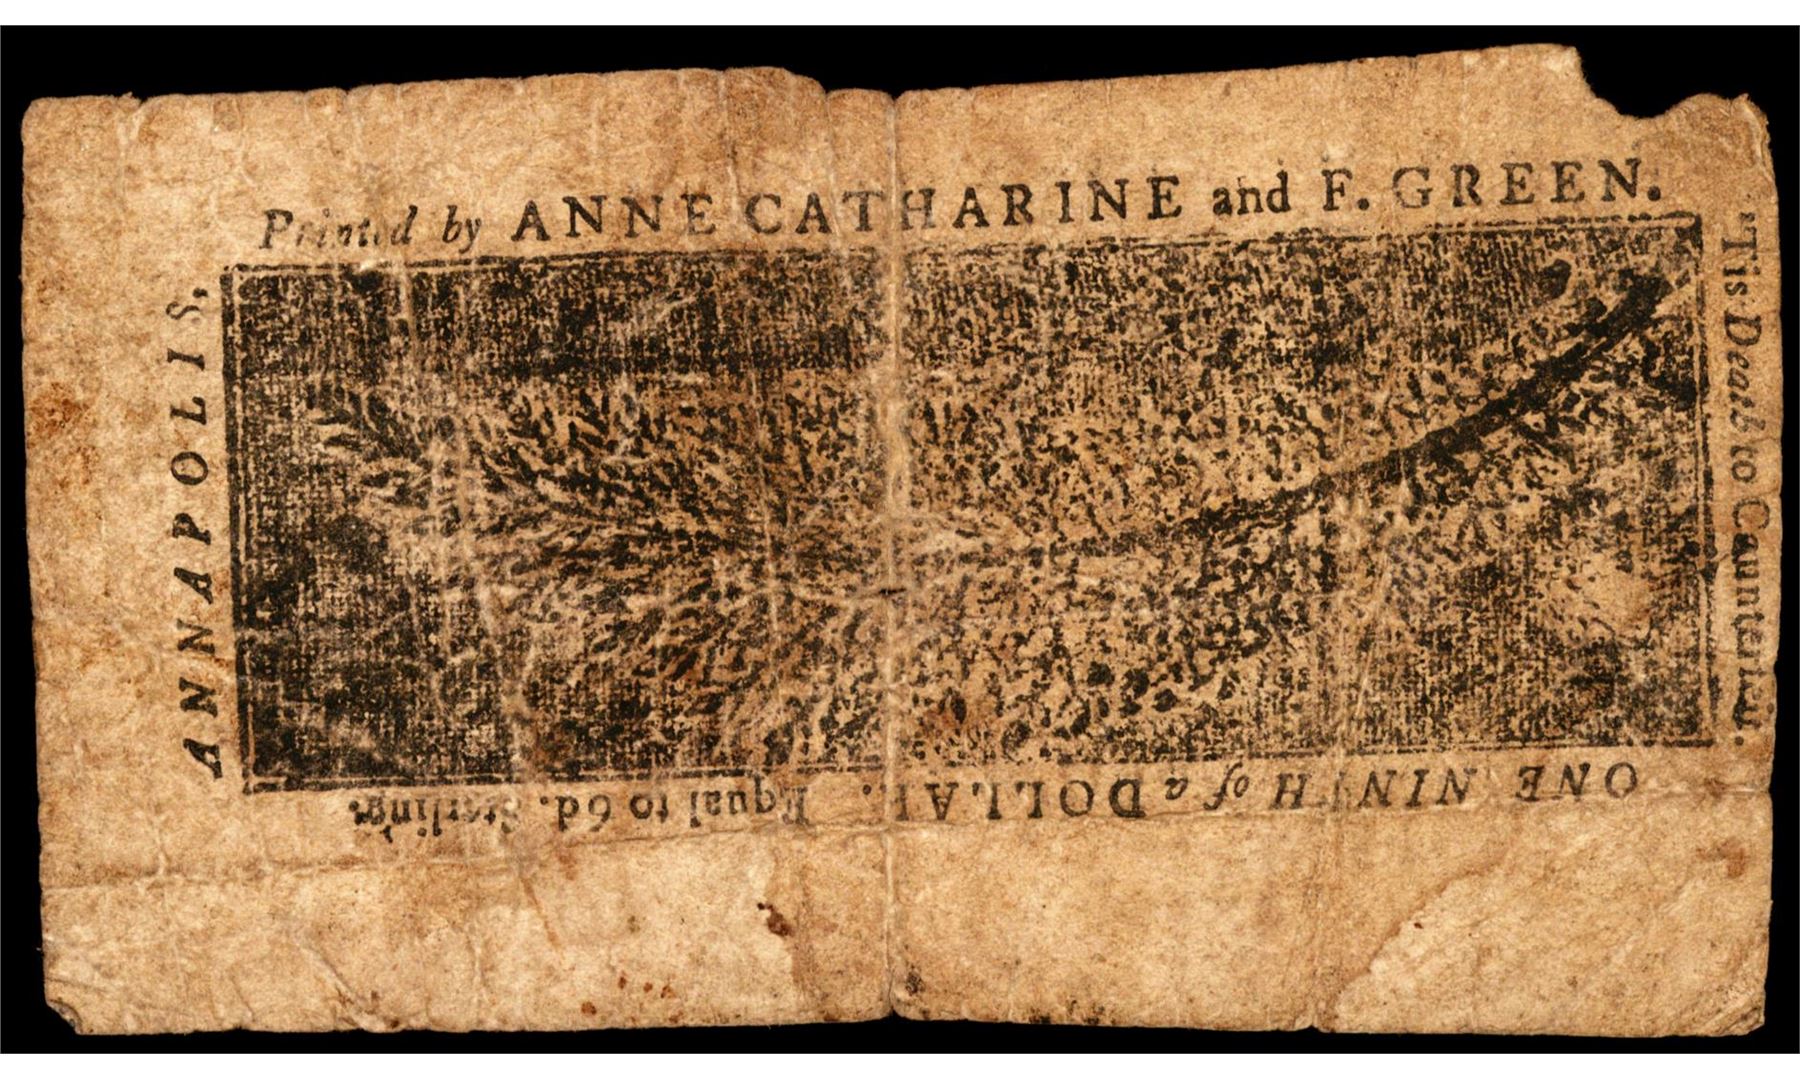 Printed by ANNE CATHARINE and F. GREEN.
'Tis Death to Counterfeit.
ONE NINTH of a DOLLAR. Equal to 6d. Sterling.
ANNAPOLIS,